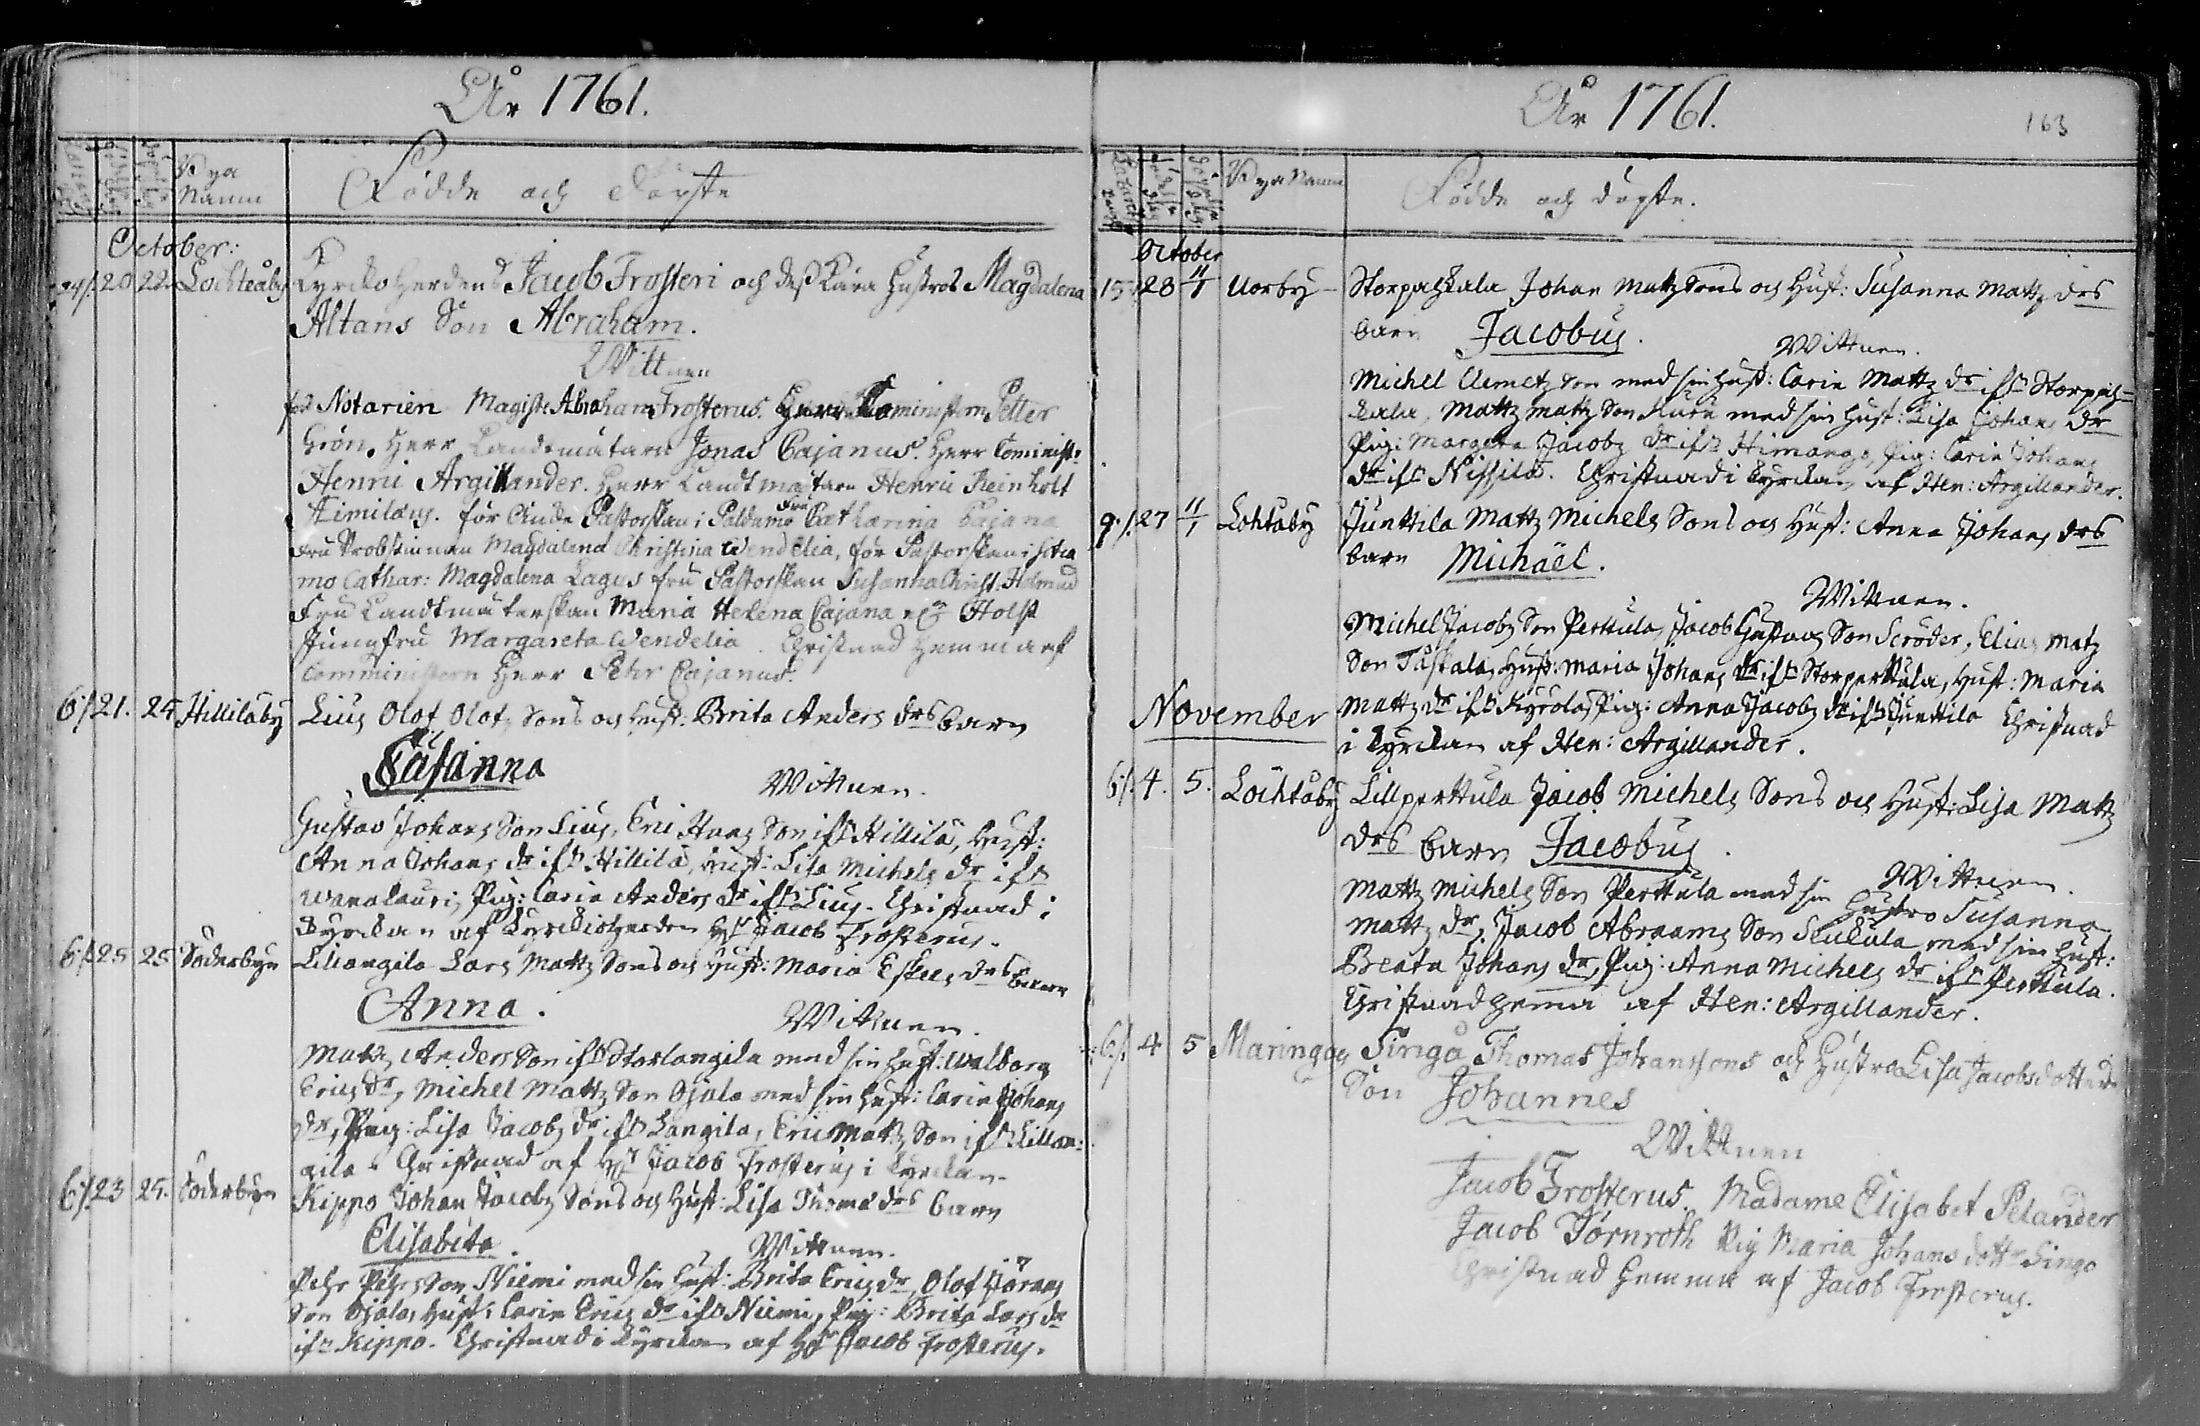 År 1761.
Bya
Namn
Födde och döpte
October:
20 22 Lochteåby Kyrckoherdens Jacob Frosteri och deß Kära Hustrus Magdalena
Altans Son Abraham.
Wittnen
Notarien Magist: Abraham Frosterus. Herr Comministern Petter
Grön. Herr Landtmätarn Jonas Cajanus. Herr Cominist:
Henric Argillander. Herr Landtmätarn Henric Reinholt
Aimilæus. för Pastorskan i Paldamo Fru Catharina Cajana
Fru Probstinnan Magdalena Christina Wendelia, för Pastorskan i Sotca
mo Cathar: Magdalena Lagus fru Pastorskan Susanna Christ: Holmud
Fru Landtmäterskan Maria Helena Cajana Holst
Jungfru Margareta Wendelia. Christnad hemma af
Comministern Herr Pehr Cajanus.
6/. 21. 25 Hillilåby Lius Olof Olofs Sons och Hust: Brita Anders drs barn
Susanna
Wittnen.
Gustav Johans Son Lius, Eric Hans Son ifr Hillilä, Hust:
Anna Johans dr ifr Hillilä, Hust: Lisa Michels dr ifr
Wanakauri, Pig: Carin Anders dr ifr Lius. Christnad i
Kyrckan af Kyrckioherden Hr Jacob Frosterus.
6/. 25 25 Söderbyn Lillangila Lars Matts Sons och Hust: Maria Eskels drs barn
Anna.
Wittnen.
Matts Anders Son ifr Storlangila med sin Hust: Walborg
Erics dr, Michel Matts Son Ojala med sin Hust: Carin Johans
dr, Pig: Lisa Jacobs dr ifr Langila, Eric Matts Son ifr Lillan-
gila. Christnad af Hr Jacob Frosterus i Kyrckan.
6/. 23 25. Söderbyn Kippo Johan Jacobs Sons och Hust: Lisa Thomædrs barn
Elisabeta.
Wittnen.
Pehr Pehrs Son Niemi med sin Hust: Brita Erics dr, Olof Görans
Son Ojala, Hust: Carin Erics dr ifr Niemi, Pig: Brita Lars dr
ifr Kippo. Christnad i Kyrckan af Hr Jacob Frosterus.
År 1761.
163
Bya Namn
Födde och döpte.
October
15 28 1/11 Uorby Storpahkala Johan Matts Sons och Hust: Susanna Matts drs
barn Jacobus.
Wittnen.
Michel Clemets Son med sin Hust: Carin Matts dr ifr Storpah-
kala, Matts Matts Son med sin Hust: Lisa Johans dr
Pig: Margeta Jacobs dr ifr Himango, Pig: Carin Johans
dr ifr Nissilä. Christnad i Kyrckan af Hen: Argillander.
9./. 27 1/11 Lohtåby Junttila Matts Michels Sons och Hust: Anna Johans drs
barn Michäel.
Wittnen.
Michel Jacobs Son Perttula, Jacob Gustavs Son Scröder, Elias Mats
Son Paskala, Hust: Maria Johans dr ifr Storperttula, Hust: Maria
Matts dr ifr Kyrola, Pig: Anna Jacobs dr ifr Junttila Christnad
i Kyrckan af Hen: Argillander.
November
6/. 4. 5. Lochtåby Lillperttula Jacob Michels Sons och Hust: Lisa Matts
drs barn Jacobus.
Wittnen.
Matts Michels Son Perttula med sin Hustro Susanna
Matts dr, Jacob Abraams Son med sin Hust:
Beata Johans dr, Pig: Anna Michels dr ifr Perttula.
Christnad hema af Hen: Argillander.
6./. 4 5 Maringas Singå Thomas Johanssons och Hustros Lisa Jacobsdotters
Son Johannes
Wittnen
Jacob Frosterus. Madame Elisabet Pelander
Jacob Törnroth Pig Maria Johans dottr Singo
Christnad hemma af Jacob Frosterus.